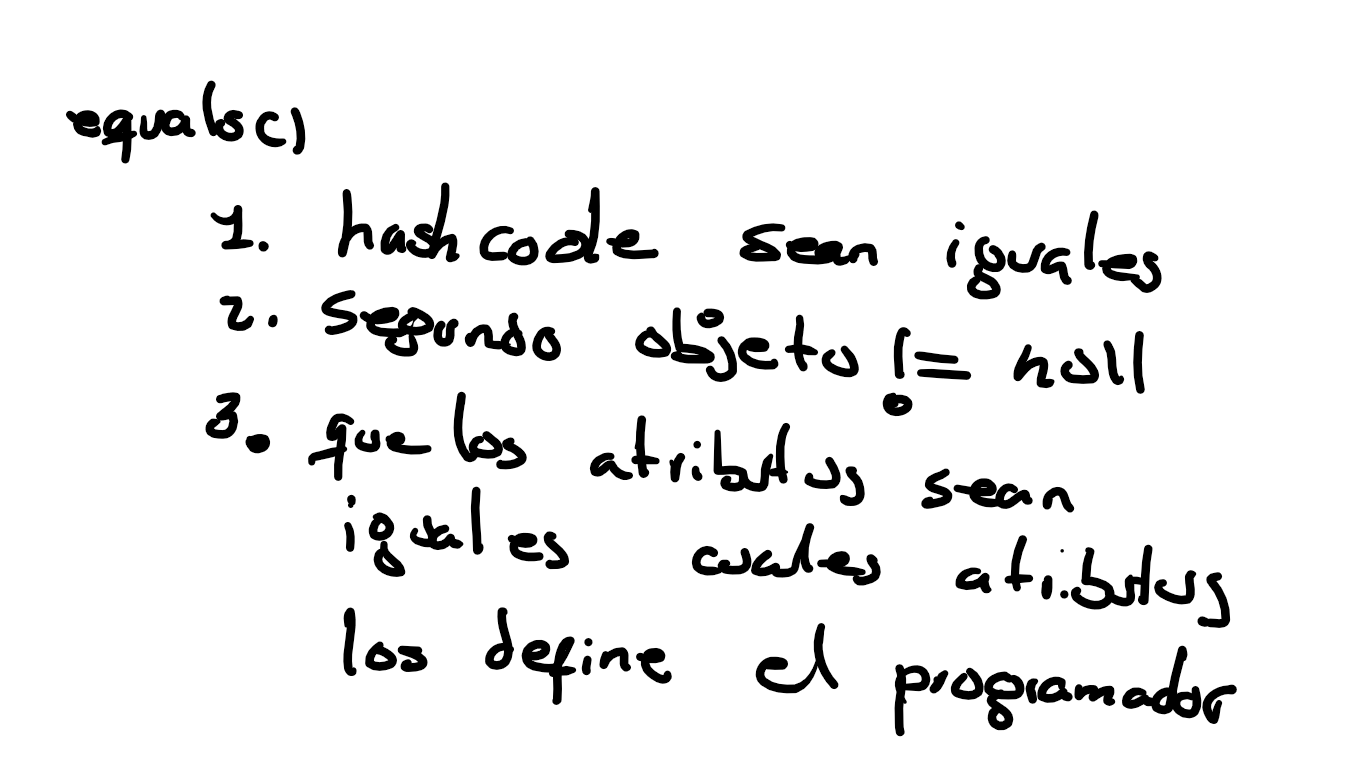 equals()
1. hashcode sean iguales
2. segundo objeto != null
3. que los atributos sean
iguales cuales atributos
los define el programador